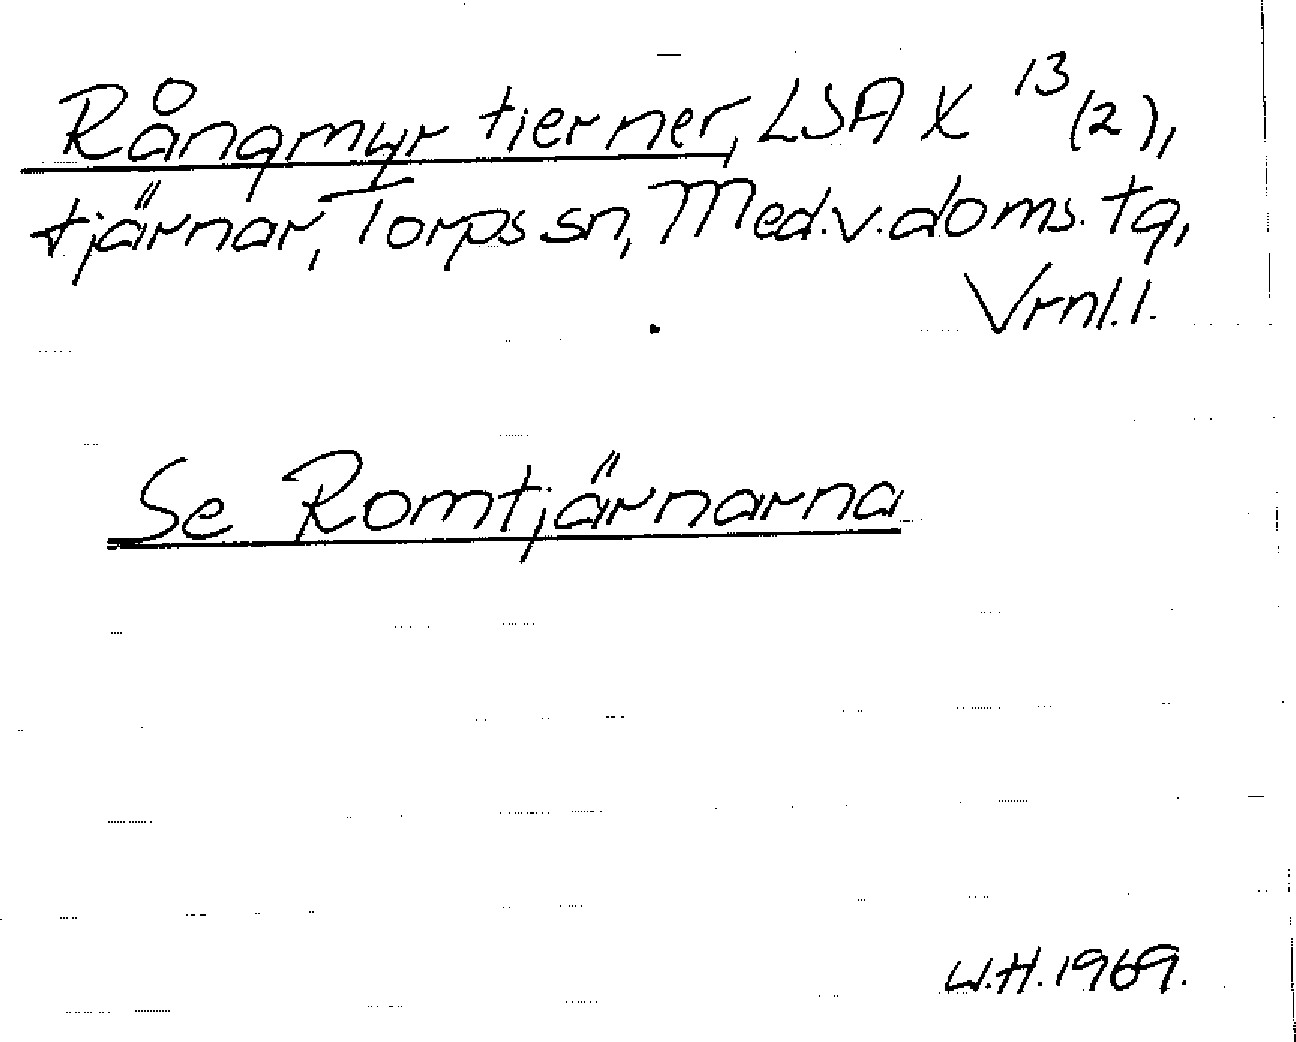 Rångmyr tierner, LSA X 13 (2),
tjärnar, Torps sn, Med.v.doms. tg,
Vrnl.l.
Se Romtjärnarna
W.H. 1969.